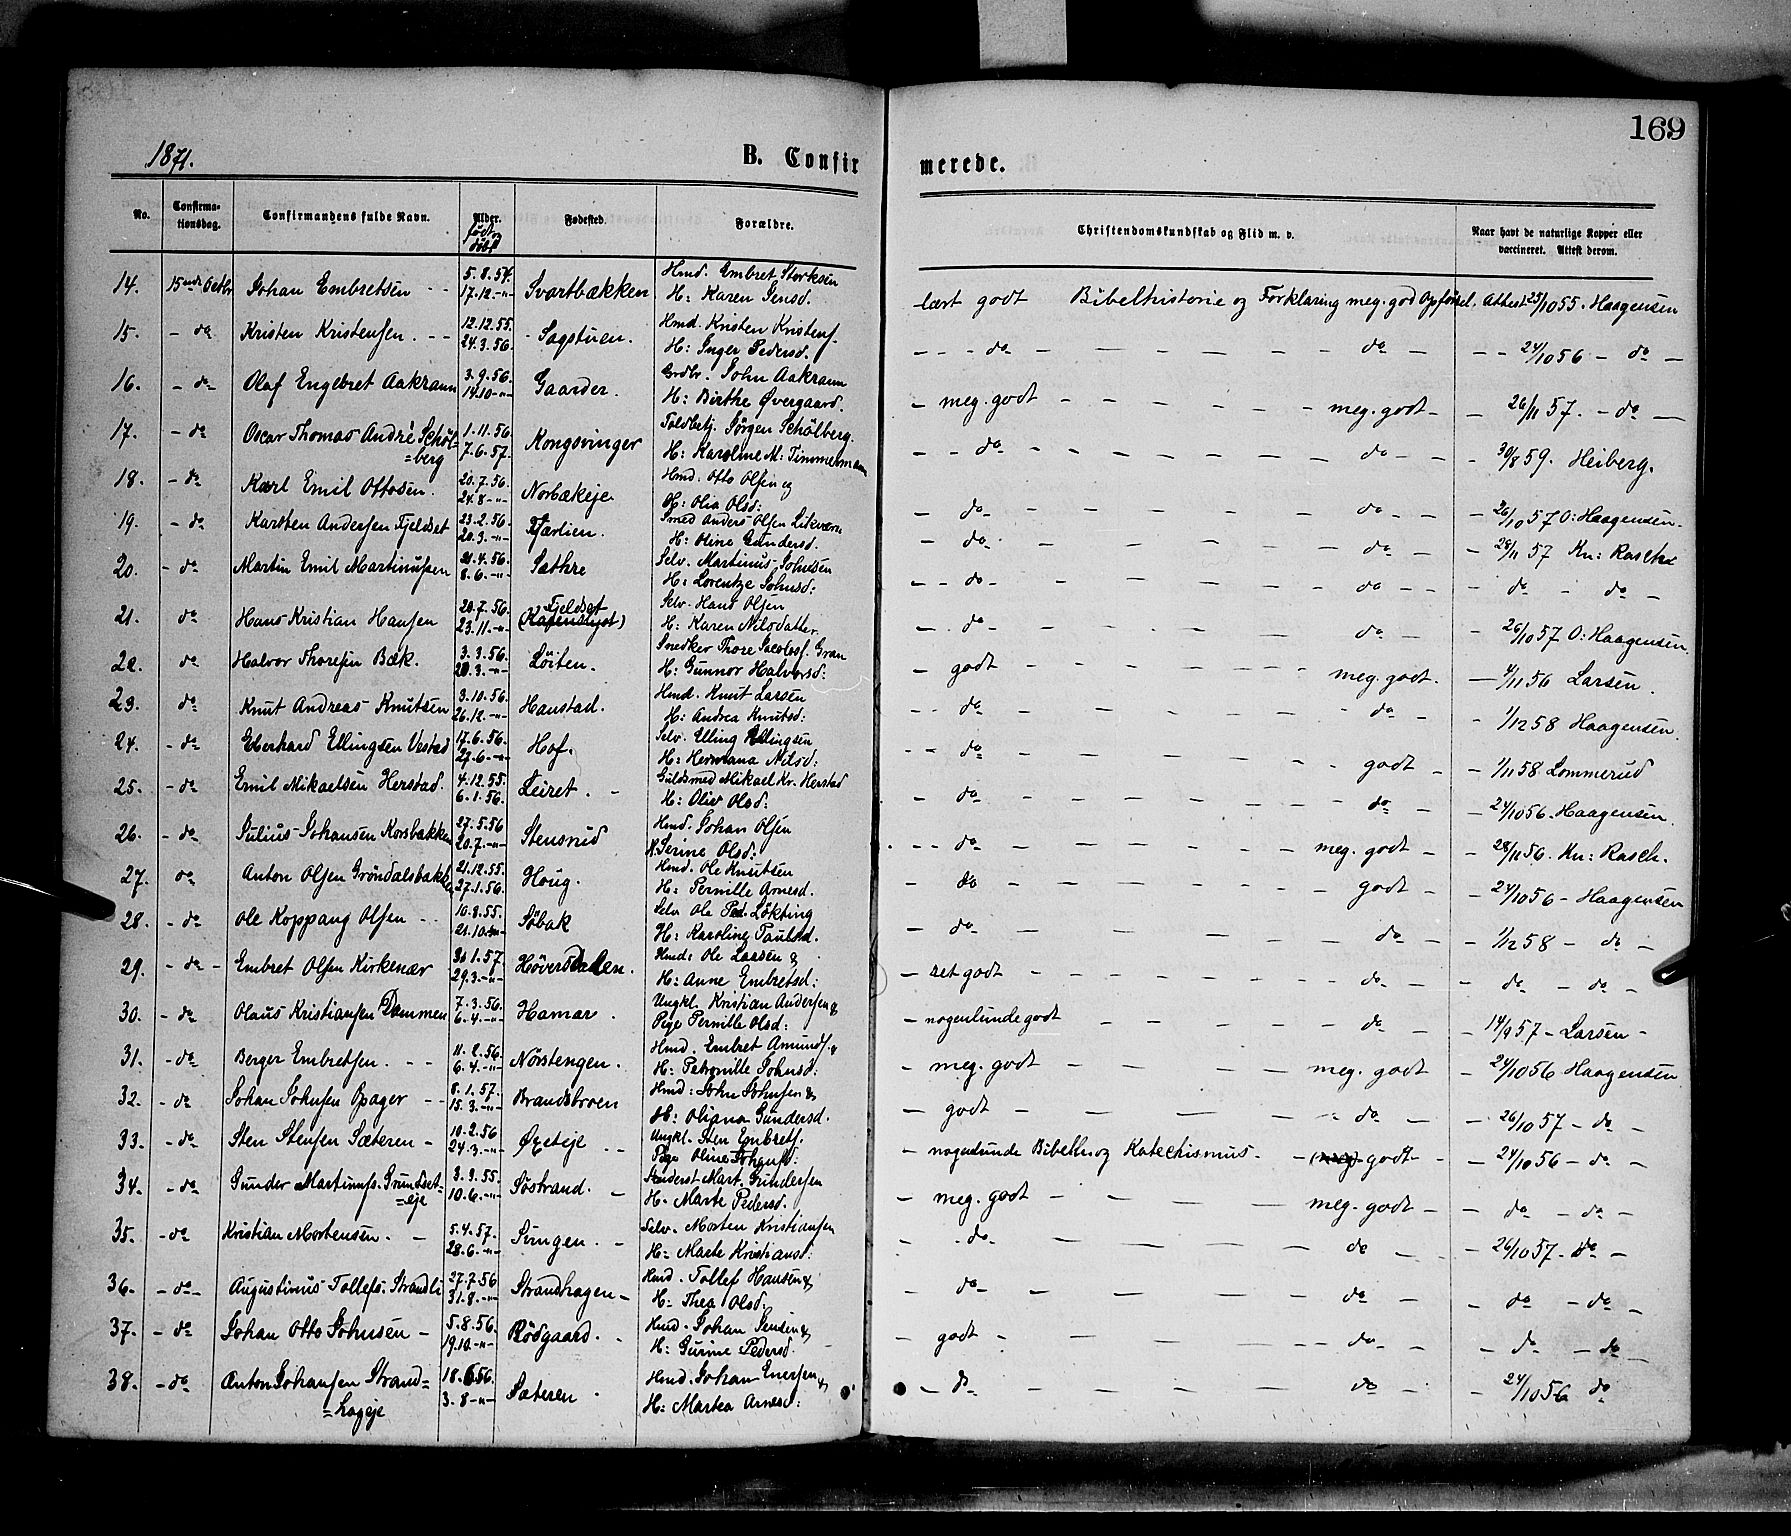 169
1871. B. Confirmerede.
No. Confirmationsdag. Confirmandens fulde Navn. Alder. født og døbt Fødested. Forældre. Christendomskundskab og Flid m. v. Naar havt de naturlige Kopper eller vaccineret. Attest derom.
14. 15nde Octbr Johan Embretsen - - 5.8.54. Svartbækken Hmd. Embret Størksen lært godt Bibelhistorie og Forklaring meg. god Opførsel. Attest 25/10 55. Haagensen
17.12-"- H: Karen Jensd.
15. - do Kristen Kristensen. - - 12.12.55. - Sagstuen. Hmd. Kristen Kristens. - - - do - - - - - - do - - - 24/10 56 - do -
24.3.56. H: Inger Pedersd.
16. - do Olaf Engebret Aakrann 3.9.56. Gaarder. Grdbr. John Aakrann - meg. godt - - - - - - meg. godt - - 26/11 57. - do -
14.10-"- H: Birthe Øvergaard.
17. - do Oscar Thomas André Schøl= 1.11.56. Kongsvinger Toldbetj. Jørgen Schölberg. - - do - - - - - - do - - - 30/8 59. Heiberg.
=berg 7.6.57. H: Karoline M. Timmermann
18. - do Karl Emil Ottosen. 20.7.56. Norbækeje Hmd. Otto Olsen og - do - - - - - - do - - 26/10 57 O: Haagensen.
24.8-"- H: Olia Olsd:
19. - do Karsten Andersen Fjeldset 23.2.56. Tjærlien. Smed Anders Olsen Litkværn - do - - - - - - do - - 28/11 57 Kn: Rasch
20.3.-"- H: Oline Gundersd.
20. - do Martin Emil Martinussen 21.4.56. Sæthre Selv. Martinus Johnsen - - do - - - - - do - - do - do -
8.6.-"- H: Lorentze Johnsd:
21. do Hans Kristian Hansen 20.7.56. Fjeldset (Kaffenslyst) Selv. Hans Olsen - . do - - - - - - do - 26/10 57 O: Haagensen.
23.11.-"- H: Karen Nilsdatter.
22. do Halvor Thoresen Bæk. 3.3.56. Löiten. Snedker Thore Jacobs. Gran - godt - - - - - - meg. godt. - 4/11 56 Larsen.
20.3.-"- H: Gunnor Halvorsd:
23. do Knut Andreas Knutsen 3.10.56. Hanstad. Hmd. Knut Larsen - do - - - - - - do - - 1/12 58 Haagensen.
26.12.-"- H: Andrea Knutsd:
24. - do Eberhard Ellingsen Vestad 17.6.56. Hof. Selv. Elling Ellingsen - - do - - - - - - godt - - 1/11 58 Lommerud
27.6-"- H: Hermana Nilsd:
25. - do Emil Mikaelsen Herstad. 4.12.55. Leiret. - Guldsmed Mikael Kr. Herstad - do - - - - - - do - - 24/10 56. Haagensen.
6.1.56. H: Oliv Olsd:
26. - do Julius Johansen Korsbakken 27.5.56 Stensrud Hmd. Johan Olsen - - do - - - - - meg. godt - - 28/11 56. Kn: Rasch.
20.7.-"- H. Serine Olsd:
27. do Anton Olsen Gröndalsbakken 21.12.55. Houg. Hmd. Ole Knutsen - do - - - - - - godt - - 24/10 56 - Haagensen
27.1.56. H: Pernille Arnesd.
28. - do Ole Koppang Olsen - - 10.8.55. Söbak Selv Ole Ped. Lökting - do - - - - - - do - - 1/12 58 - do -
21.10.-"- H: Karoline Paulsd.
29. - do - Embret Olsen Kirkenær 30.1.57. Höversdalen. Hmd: Ole Larsen & - ret godt - - - - - do - - do - do -
29.3.-"- H: Anne Embretsd:
30. - do Olaus Kristiansen Dammen 7.3.56. Hamar. Ungkl. Kristian Andersen & - nogenlunde godt - - - - do - - 14/9 57 - Larsen -
6.4.-"- Pige Pernille Olsd:
31. - do Berger Embretsen. - - 11.2.56. Nörstengen. Hmd. Embret Amunds. & - meg. godt - - - - - meg. godt - 24/10 56 Haagensen
6.4.-"- H: Petronille Johnsd:
32. - do Johan Johnsen Opager - - 8.1.57. Brandsbroen Hmd: John Johnsen & - godt - - - - - - do - - 26/10 57 - do -
15.3.-"- H: Oliana Gundersd.
33. - do Sten Stensen Sæteren - 10.2.56 Øxeteje - - Ungkl. Sten Embrets. - nogenlunde Bibelh. og Katechismus - - (meg) godt - - 24/10 56 - do -
24.3.-"- Pige Oline Johansd:
34. - do Gunder Martinus. Grundset= 3.3.55. Söstrand. - Mart. Gundersen - meg. godt - - - - - meg. godt - - do - do -
=eje 10.6.-"- H. Marte Pedersd.
35. - do Kristian Mortensen. - 5.4.57. Svingen. - Selv. Morten Kristiansen - . do - - - - - do - - 26/10 57. do -
28.6-"- H: Marte Kristiansd:
36. - do - Augustinus Tollefs. Strandli 27.7.56 Strandhagen - Hmd. Tollef Hansen & - do - - - - - do - - do - do -
31.8.-"- H: Thea Olsd:
37. - do Johan Otto Johnsen - 5.8.56. Rödgaard. - Hmd. Johan Jensen & - godt - - - - - do - - do - do -
19.10.-"- H: Gurine Pedersd.
38. - do Anton Johansen Strand= 18.6.56. Sæteren. Hmd. Johan Enersen & - do - - - - - do - - 24/10 56 do
=hageje 3.8-"- H: Martea Arnesd: